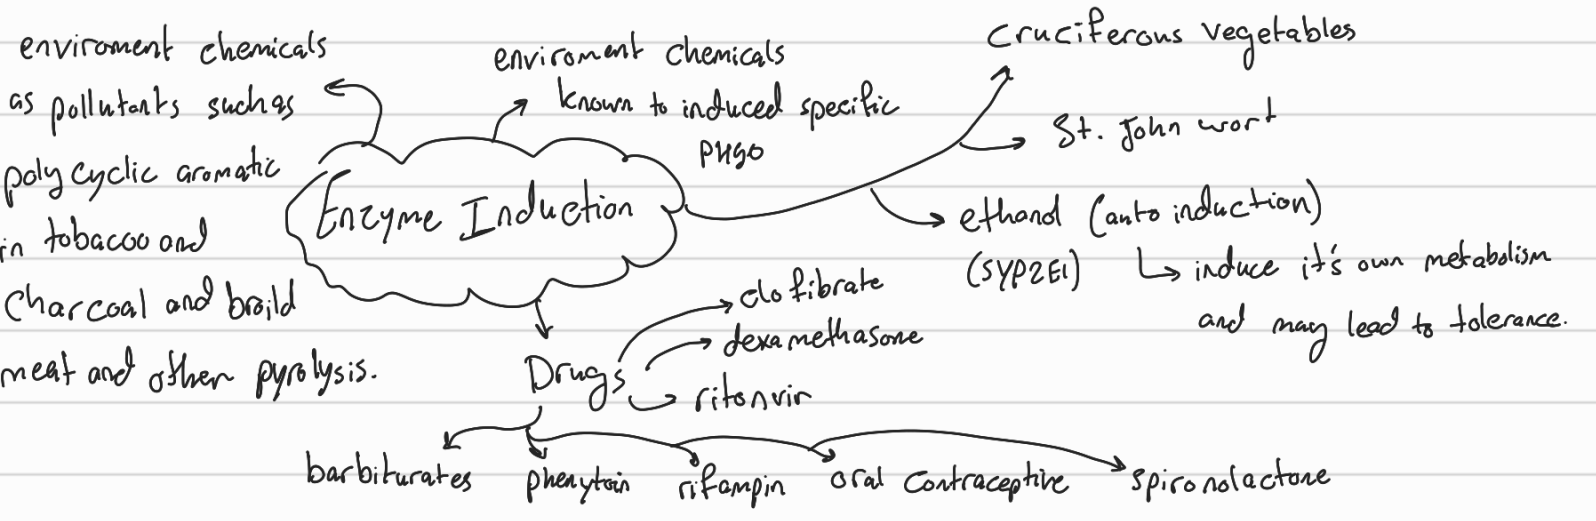 enviroment chemicals
as pollutants such as
polycyclic aromatic
in tobacco and
charcoal and broild
meat and other pyrolysis.
enviroment chemicals
known to induced specific
P450
Cruciferous vegetables
St. John wort
ethanol (auto induction)
(SYP2E1)
induce it's own metabolism
and may lead to tolerance.
Enzyme Induction
Drugs
clofibrate
dexamethasone
ritonvir
barbiturates phenytoin rifampin oral contraceptive spironolactone